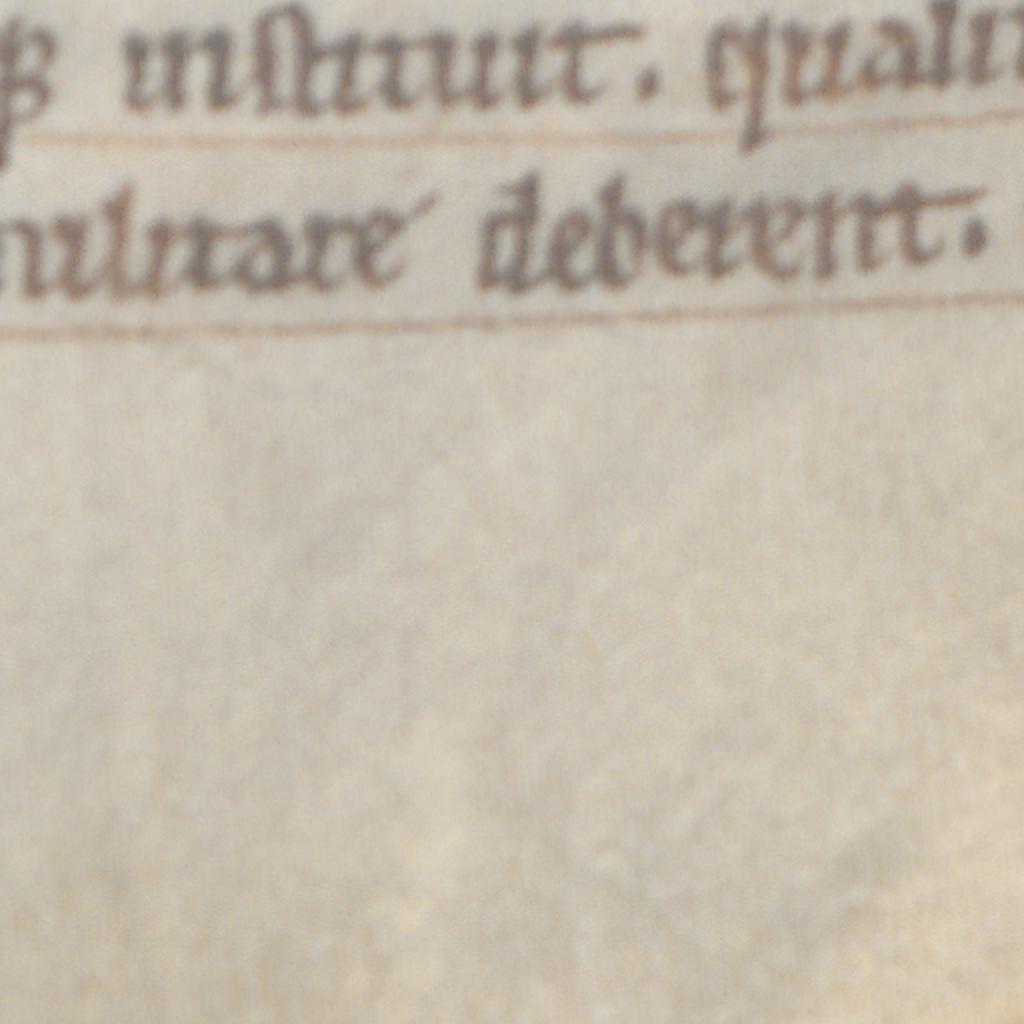 instituit. quali
militare deberent.